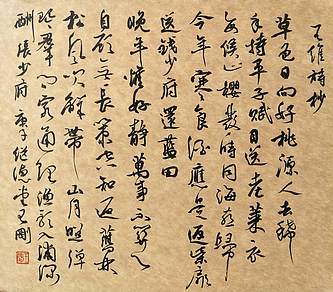 王維詩抄
草色日向好桃源人去稀
手持平子賦目送老萊衣
每候山櫻發時同海燕歸
今年寒食酒應是返柴扉
送錢少府還藍田
晚年惟好静萬事不關心
自顧無長策空知返舊林
松風吹解帶山月照彈
琴君問窮通理漁歌入浦深
酬張少府 庚子 王剛